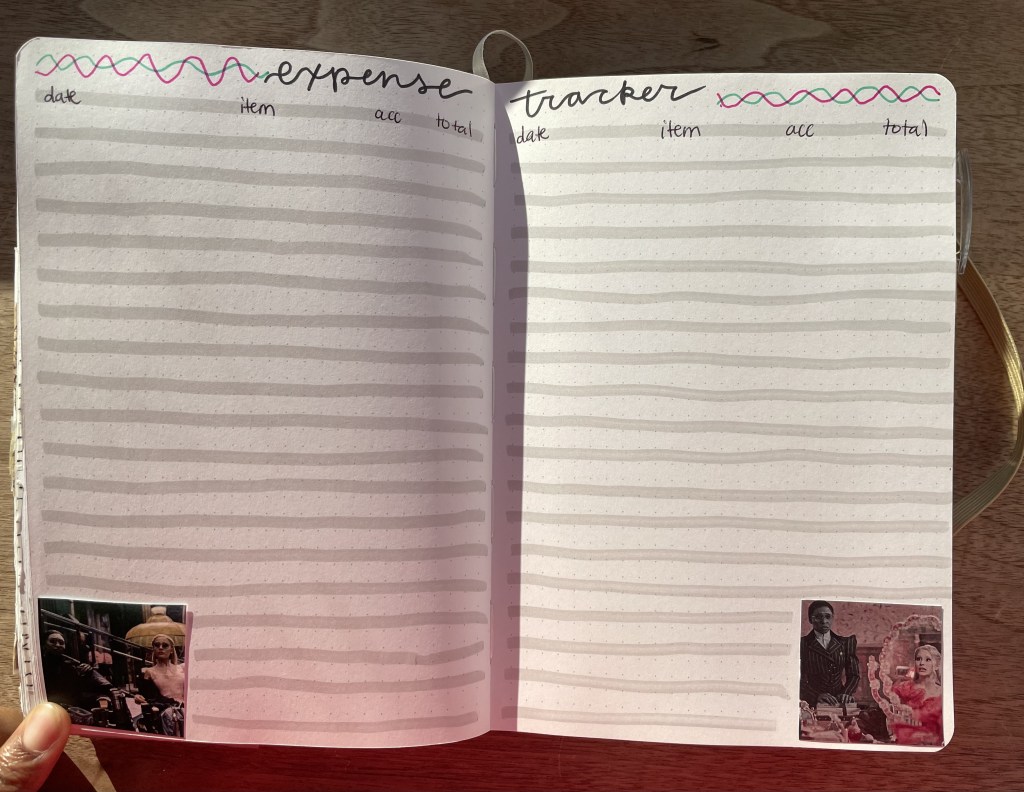 expense tracker
date item acc total
date item acc total